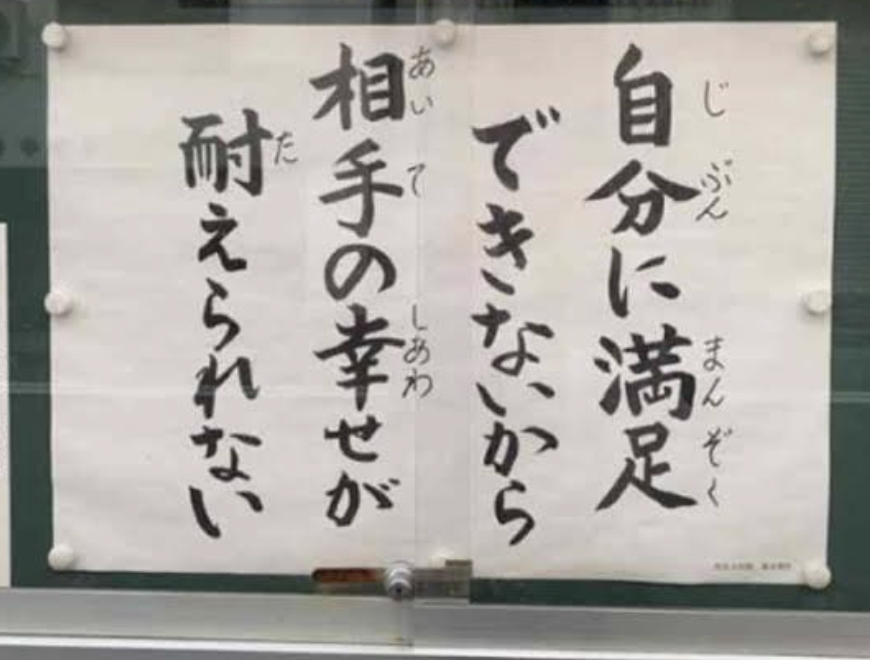 自分に満足
できないから
相手の幸せが
耐えられない
じ ぶん まん ぞく
あい て しあわ
た